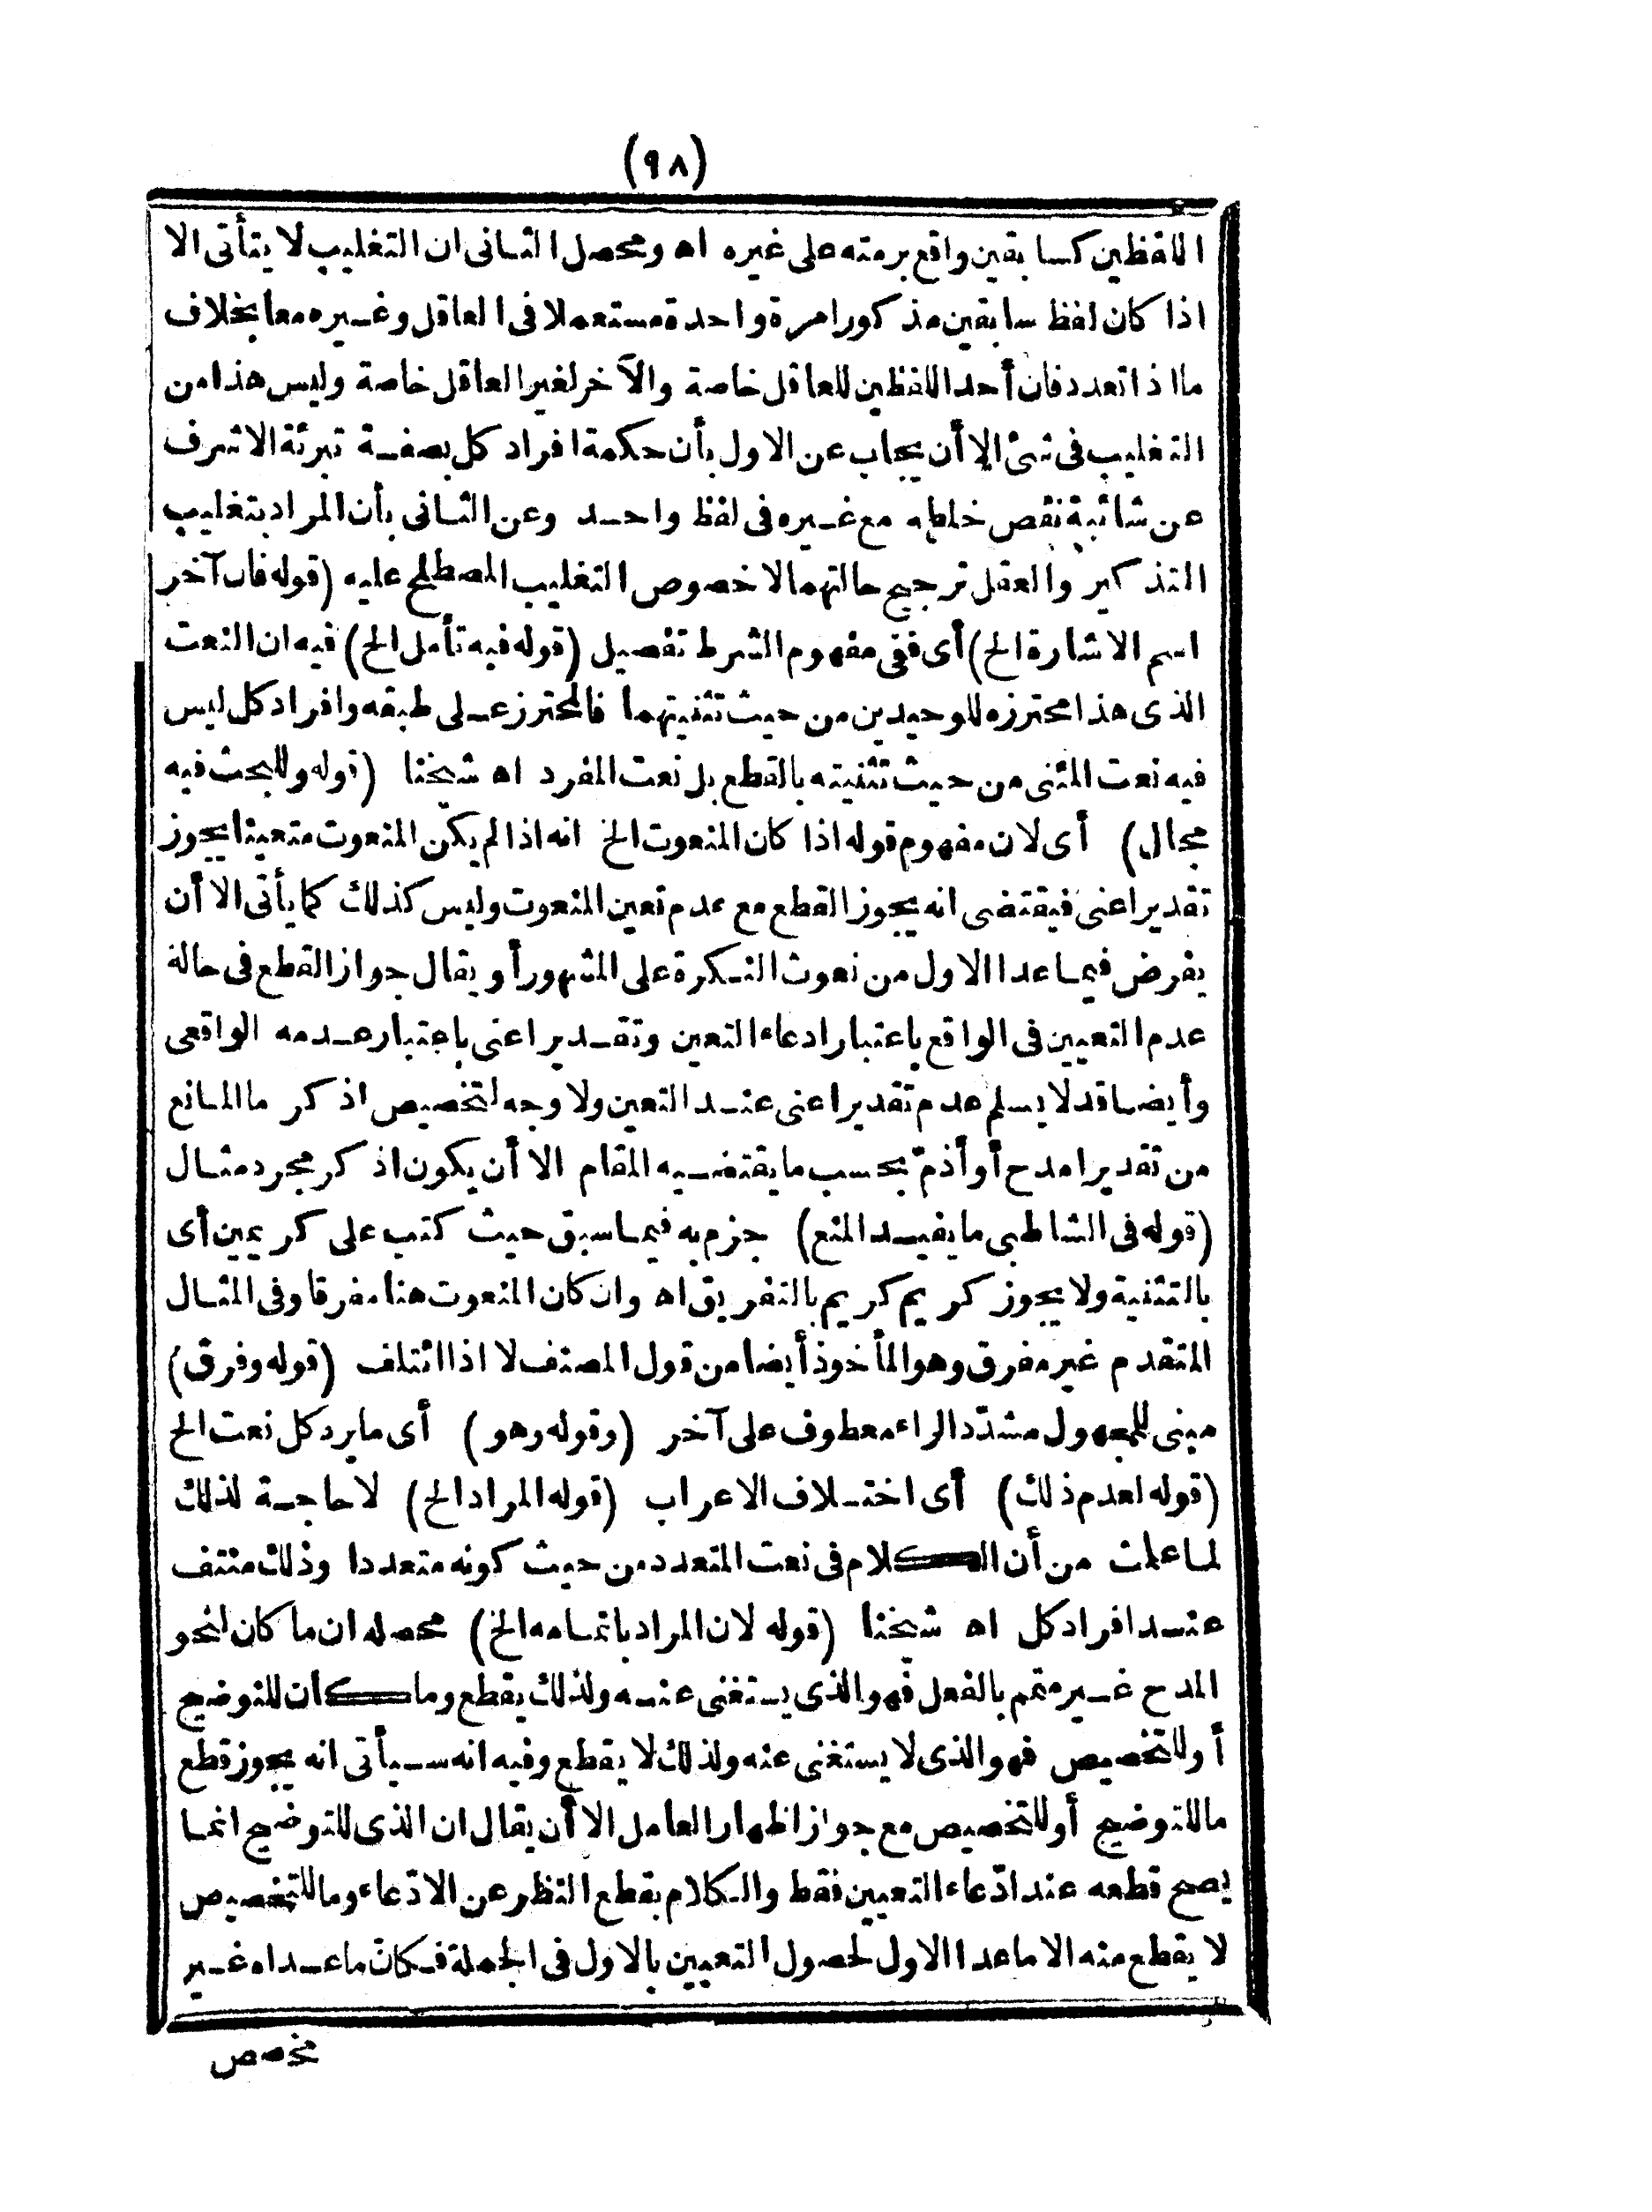 (٩٨)
اللفظين كسابقين واقع برمته على غيره اه ومحصل الثانى ان التغليب لا يتأتى الا
اذا كان لفظ سابقين مذكورا مرة واحدة مستعملا فى العاقل وغيره معا بخلاف
ما اذا تعدد فان أحد اللفظين للعاقل خاصة والآخر لغير العاقل خاصة وليس هذا من
التغليب فى شئ الا أن يجاب عن الاول بأن حكمة افراد كل بصفة تبرئة الاشرف
عن شائبة نقص خلطه مع غيره فى لفظ واحد وعن الثانى بأن المراد بتغليب
التذكير والعقل ترجيح حالتهما لا خصوص التغليب المصطلح عليه (قوله فان آخر
اسم الاشارة الخ) أى ففى مفهوم الشرط تفصيل (قوله فيه تأمل الخ) فيه ان النعت
الذى هذا محترزه للوحيدين من حيث تثنيتهما فالمحترز على طبقه وافراد كل ليس
فيه نعت المثنى من حيث تثنيته بالقطع بل نعت المفرد اه شيخنا (قوله وللبحث فيه
مجال) أى لان مفهوم قوله اذا كان المنعوت الخ انه اذا لم يكن المنعوت متعينا يجوز
تقدير اعنى فيقتضى انه يجوز القطع مع عدم تعين المنعوت وليس كذلك كما يأتى الا أن
يفرض فيما عدا الاول من نعوت النكرة على المشهور أو يقال جواز القطع فى حالة
عدم التعيين فى الواقع باعتبار ادعاء التعين وتقدير اعنى باعتبار عدمه الواقعى
وأيضا قد لا يسلم عدم تقدير اعنى عند التعين ولا وجه لتخصيص اذكر ما المانع
من تقدير امدح أو أذمّ بحسب ما يقتضيه المقام الا أن يكون اذكر مجرد مثال
(قوله فى الشاطبى ما يفيد المنع) جزم به فيما سبق حيث كتب على كريمين أى
بالتثنية ولا يجوز كريم كريم بالتفريق اه وان كان المنعوت هنا مفرقا وفى المثال
المتقدم غير مفرق وهو المأخوذ أيضا من قول المصنف لا اذا ائتلف (قوله وفرق)
مبنى للمجهول مشدّد الراء معطوف على آخر (وقوله وهو) أى ما يرد كل نعت الخ
(قوله لعدم ذلك) أى اختلاف الاعراب (قوله المراد الخ) لا حاجة لذلك
لما علمت من أن الكلام فى نعت المتعدد من حيث كونه متعددا وذلك منتف
عند افراد كل اه شيخنا (قوله لان المراد باتمامه الخ) محصله ان ما كان لنحو
المدح غير متمم بالفعل فهو الذى يستغنى عنه ولذلك يقطع وما كان للتوضيح
أو للتخصيص فهو الذى لا يستغنى عنه ولذلك لا يقطع وفيه انه سيأتى انه يجوز قطع
ما للتوضيح أو للتخصيص مع جواز اظهار العامل الا أن يقال ان الذى للتوضيح انما
يصح قطعه عند ادّعاء التعيين فقط والكلام بقطع النظر عن الادّعاء وما للتخصيص
لا يقطع منه الا ما عدا الاول لحصول التعيين بالاول فى الجملة فكان ما عداه غير
مخصص